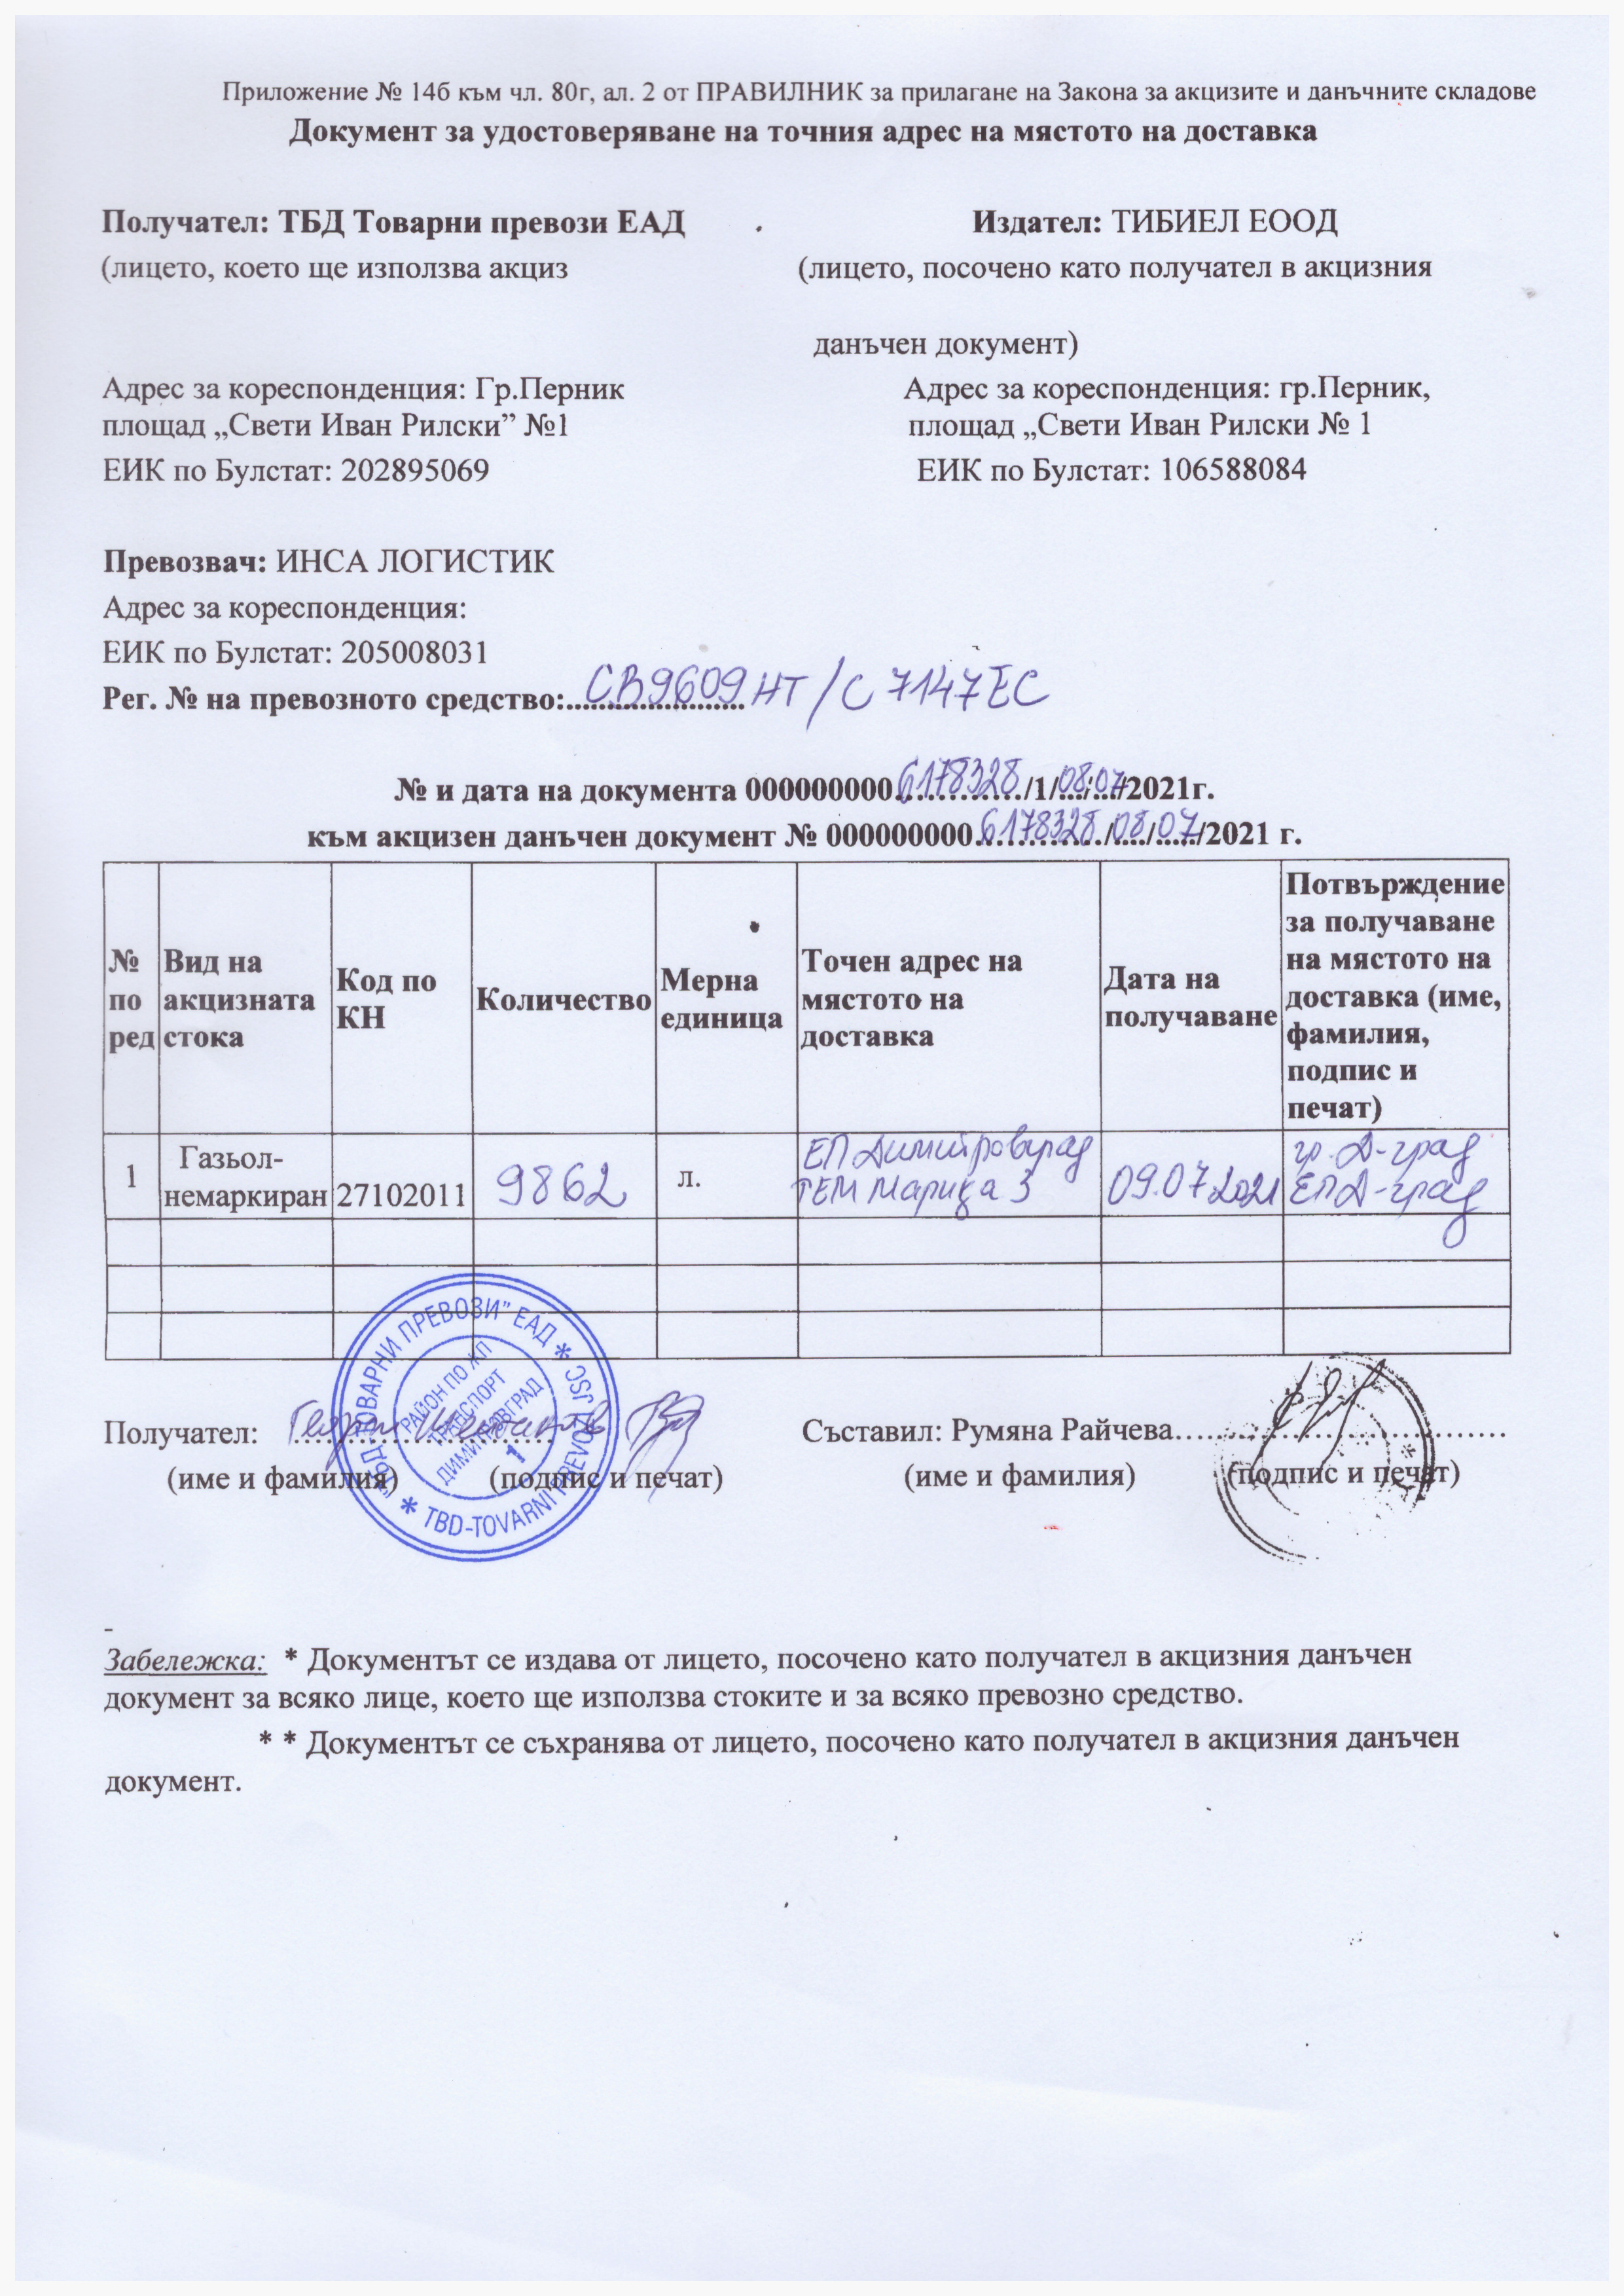 Приложение № 14б към чл. 80г, ал. 2 от ПРАВИЛНИК за прилагане на Закона за акцизите и данъчните складове
Документ за удостоверяване на точния адрес на мястото на доставка
Получател: ТБД Товарни превози ЕАД Издател: ТИБИЕЛ ЕООД
(лицето, което ще използва акциз (лицето, посочено като получател в акцизния
данъчен документ)
Адрес за кореспонденция: Гр.Перник Адрес за кореспонденция: гр.Перник,
площад „Свети Иван Рилски” №1 площад „Свети Иван Рилски № 1
ЕИК по Булстат: 202895069 ЕИК по Булстат: 106588084
Превозвач: ИНСА ЛОГИСТИК
Адрес за кореспонденция:
ЕИК по Булстат: 205008031
Рег. № на превозното средство: СВ9609НТ/С7147ЕС
№ и дата на документа 000000000 6178328/1/08/07/2021г.
към акцизен данъчен документ № 000000000 6178328/08/07/2021 г.
№ по ред Вид на акцизната стока Код по КН Количество Мерна единица Точен адрес на мястото на доставка Дата на получаване Потвърждение за получаване на мястото на доставка (име, фамилия, подпис и печат)
1 Газьол-немаркиран 27102011 9862 л. ЕП Димитровград ТЕМ Марица 3 09.07.2021 гр. Д-град ЕП Д-град
"ТБД ТОВАРНИ ПРЕВОЗИ" ЕАД * TBD-TOVARNI PREVOZI JSC *
РАЙОН ПО ЖП
ТРАНСПОРТ
ДИМИТРОВГРАД
1
Получател: Георги Съставил: Румяна Райчева
(име и фамилия) (подпис и печат) (име и фамилия) (подпис и печат)
Забележка: * Документът се издава от лицето, посочено като получател в акцизния данъчен
документ за всяко лице, което ще използва стоките и за всяко превозно средство.
* * Документът се съхранява от лицето, посочено като получател в акцизния данъчен
документ.